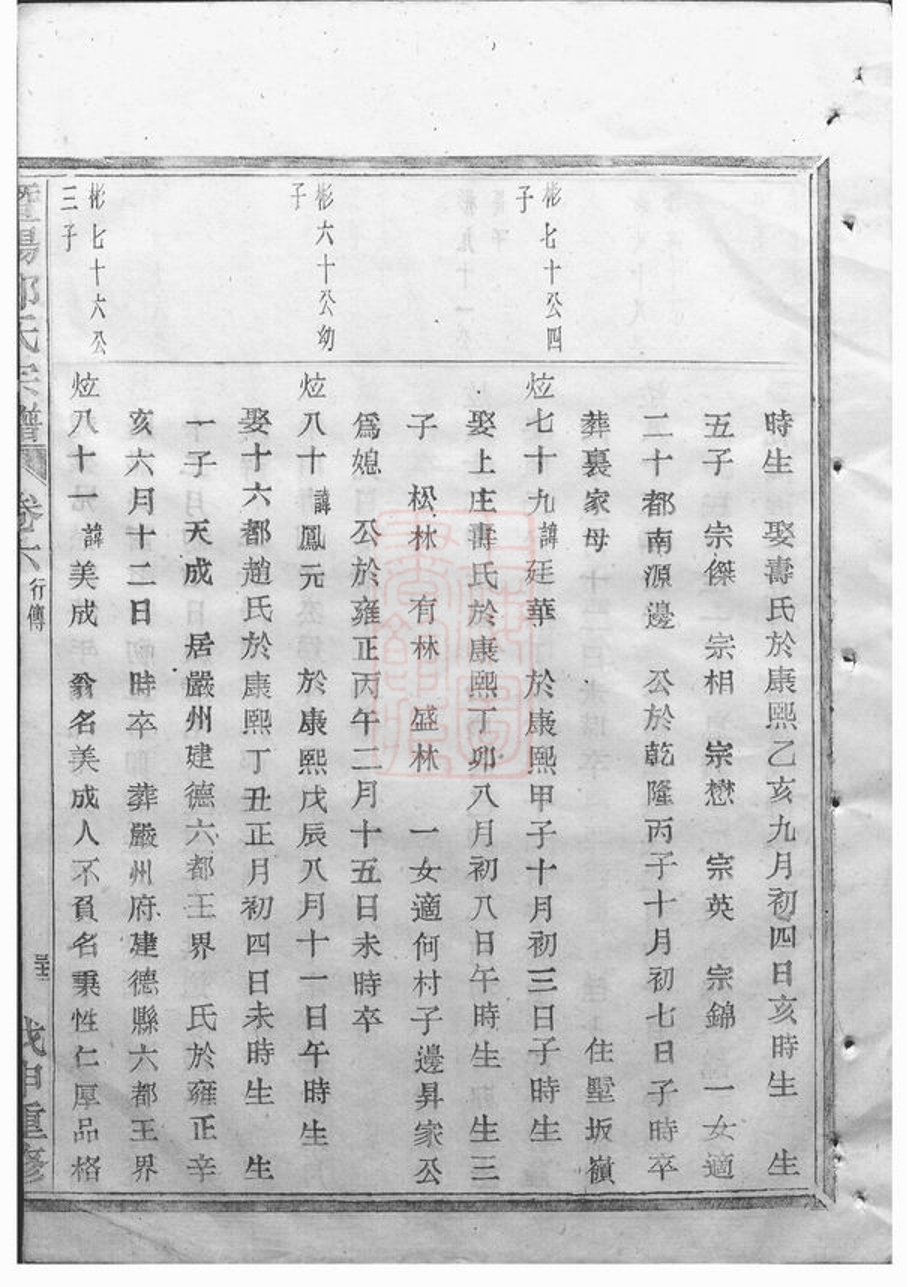 時生　娶壽氏於康熙乙亥九月初四日亥時生　生
五子　宗傑　宗相　宗懋　宗英　宗錦　一女適
二十都南源邊　公於乾隆丙子十月初七日子時卒
葬裏家母　住墅坂嶺
彬七十公四
子
炫七十九諱廷華　於康熙甲子十月初三日子時生
娶上庄壽氏於康熙丁卯八月初八日午時生　生三
子　松林　有林　盛林　一女適何村子邊昇家公
爲媳　公於雍正丙午二月十五日未時卒
彬六十公幼
子
炫八十諱鳳元　於康熙戊辰八月十一日午時生
娶十六都趙氏於康熙丁丑正月初四日未時生　生
一子　天成　居嚴州建德六都王界　氏於雍正辛
亥六月十二日時卒　葬嚴州府建德縣六都王界
彬七十六公
三子
炫八十一諱美成　翁名美成人不負名秉性仁厚品格
暨陽　氏宗譜　卷六　行傳　戊申重修